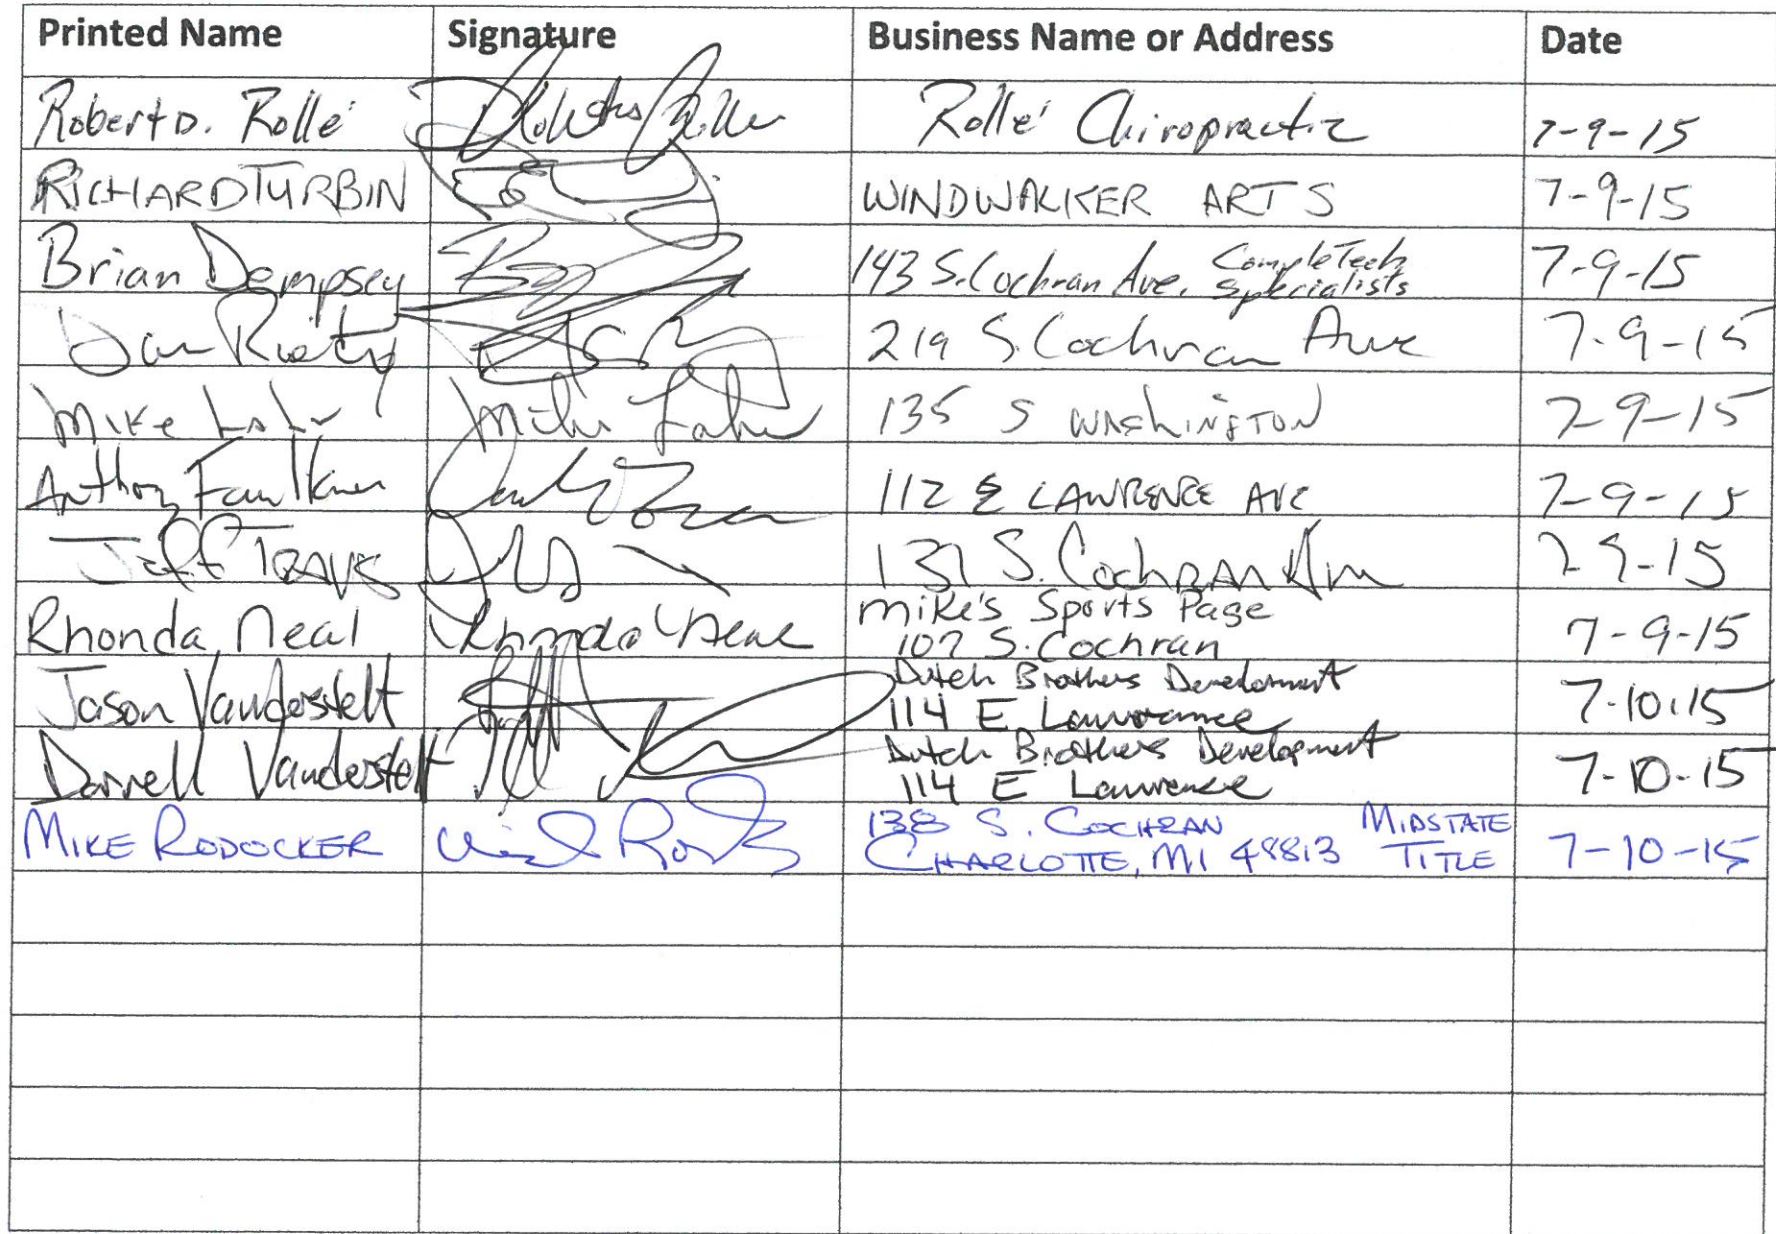 Printed Name Signature Business Name or Address Date
Robert D. Rollé Rollé Chiropractic 7-9-15
RICHARD TURBIN WINDWALKER ARTS 7-9-15
Brian Dempsey 143 S. Cochran Ave. CompleTech Specialists 7-9-15
Dan 219 S. Cochran Ave 7-9-15
Mike Mike 135 S WAShINGTON 7-9-15
Anthony Faulkner 112 E LAWRENCE AVE 7-9-15
Jeff TRAVIS S. CochRAN 7-9-15
Rhonda Neal Rhonda Neal Mike's Sports Page
107 S. Cochran 7-9-15
Jason Vanderstelt Dutch Brothers Development
114 E Lawrence 7-10-15
Darrell Vanderstelt Dutch Brothers Development
114 E Lawrence 7-10-15
MIKE RODOCKER 138 S. COCHRAN MIDSTATE
CHARLOTTE, MI 48813 TITLE 7-10-15